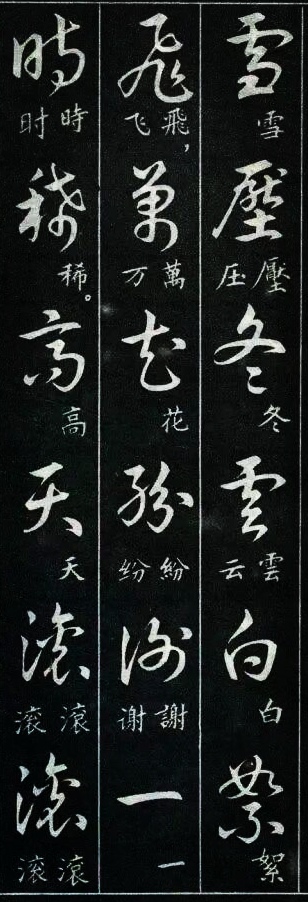 雪壓冬雲白絮
雪
壓 压
冬
雲 云
白
絮
飛萬花紛謝一
飛， 飞
萬 万
花
紛 纷
謝 谢
一
時稀高天滾滾
時 时
稀。
高
天
滾 滚
滾 滚